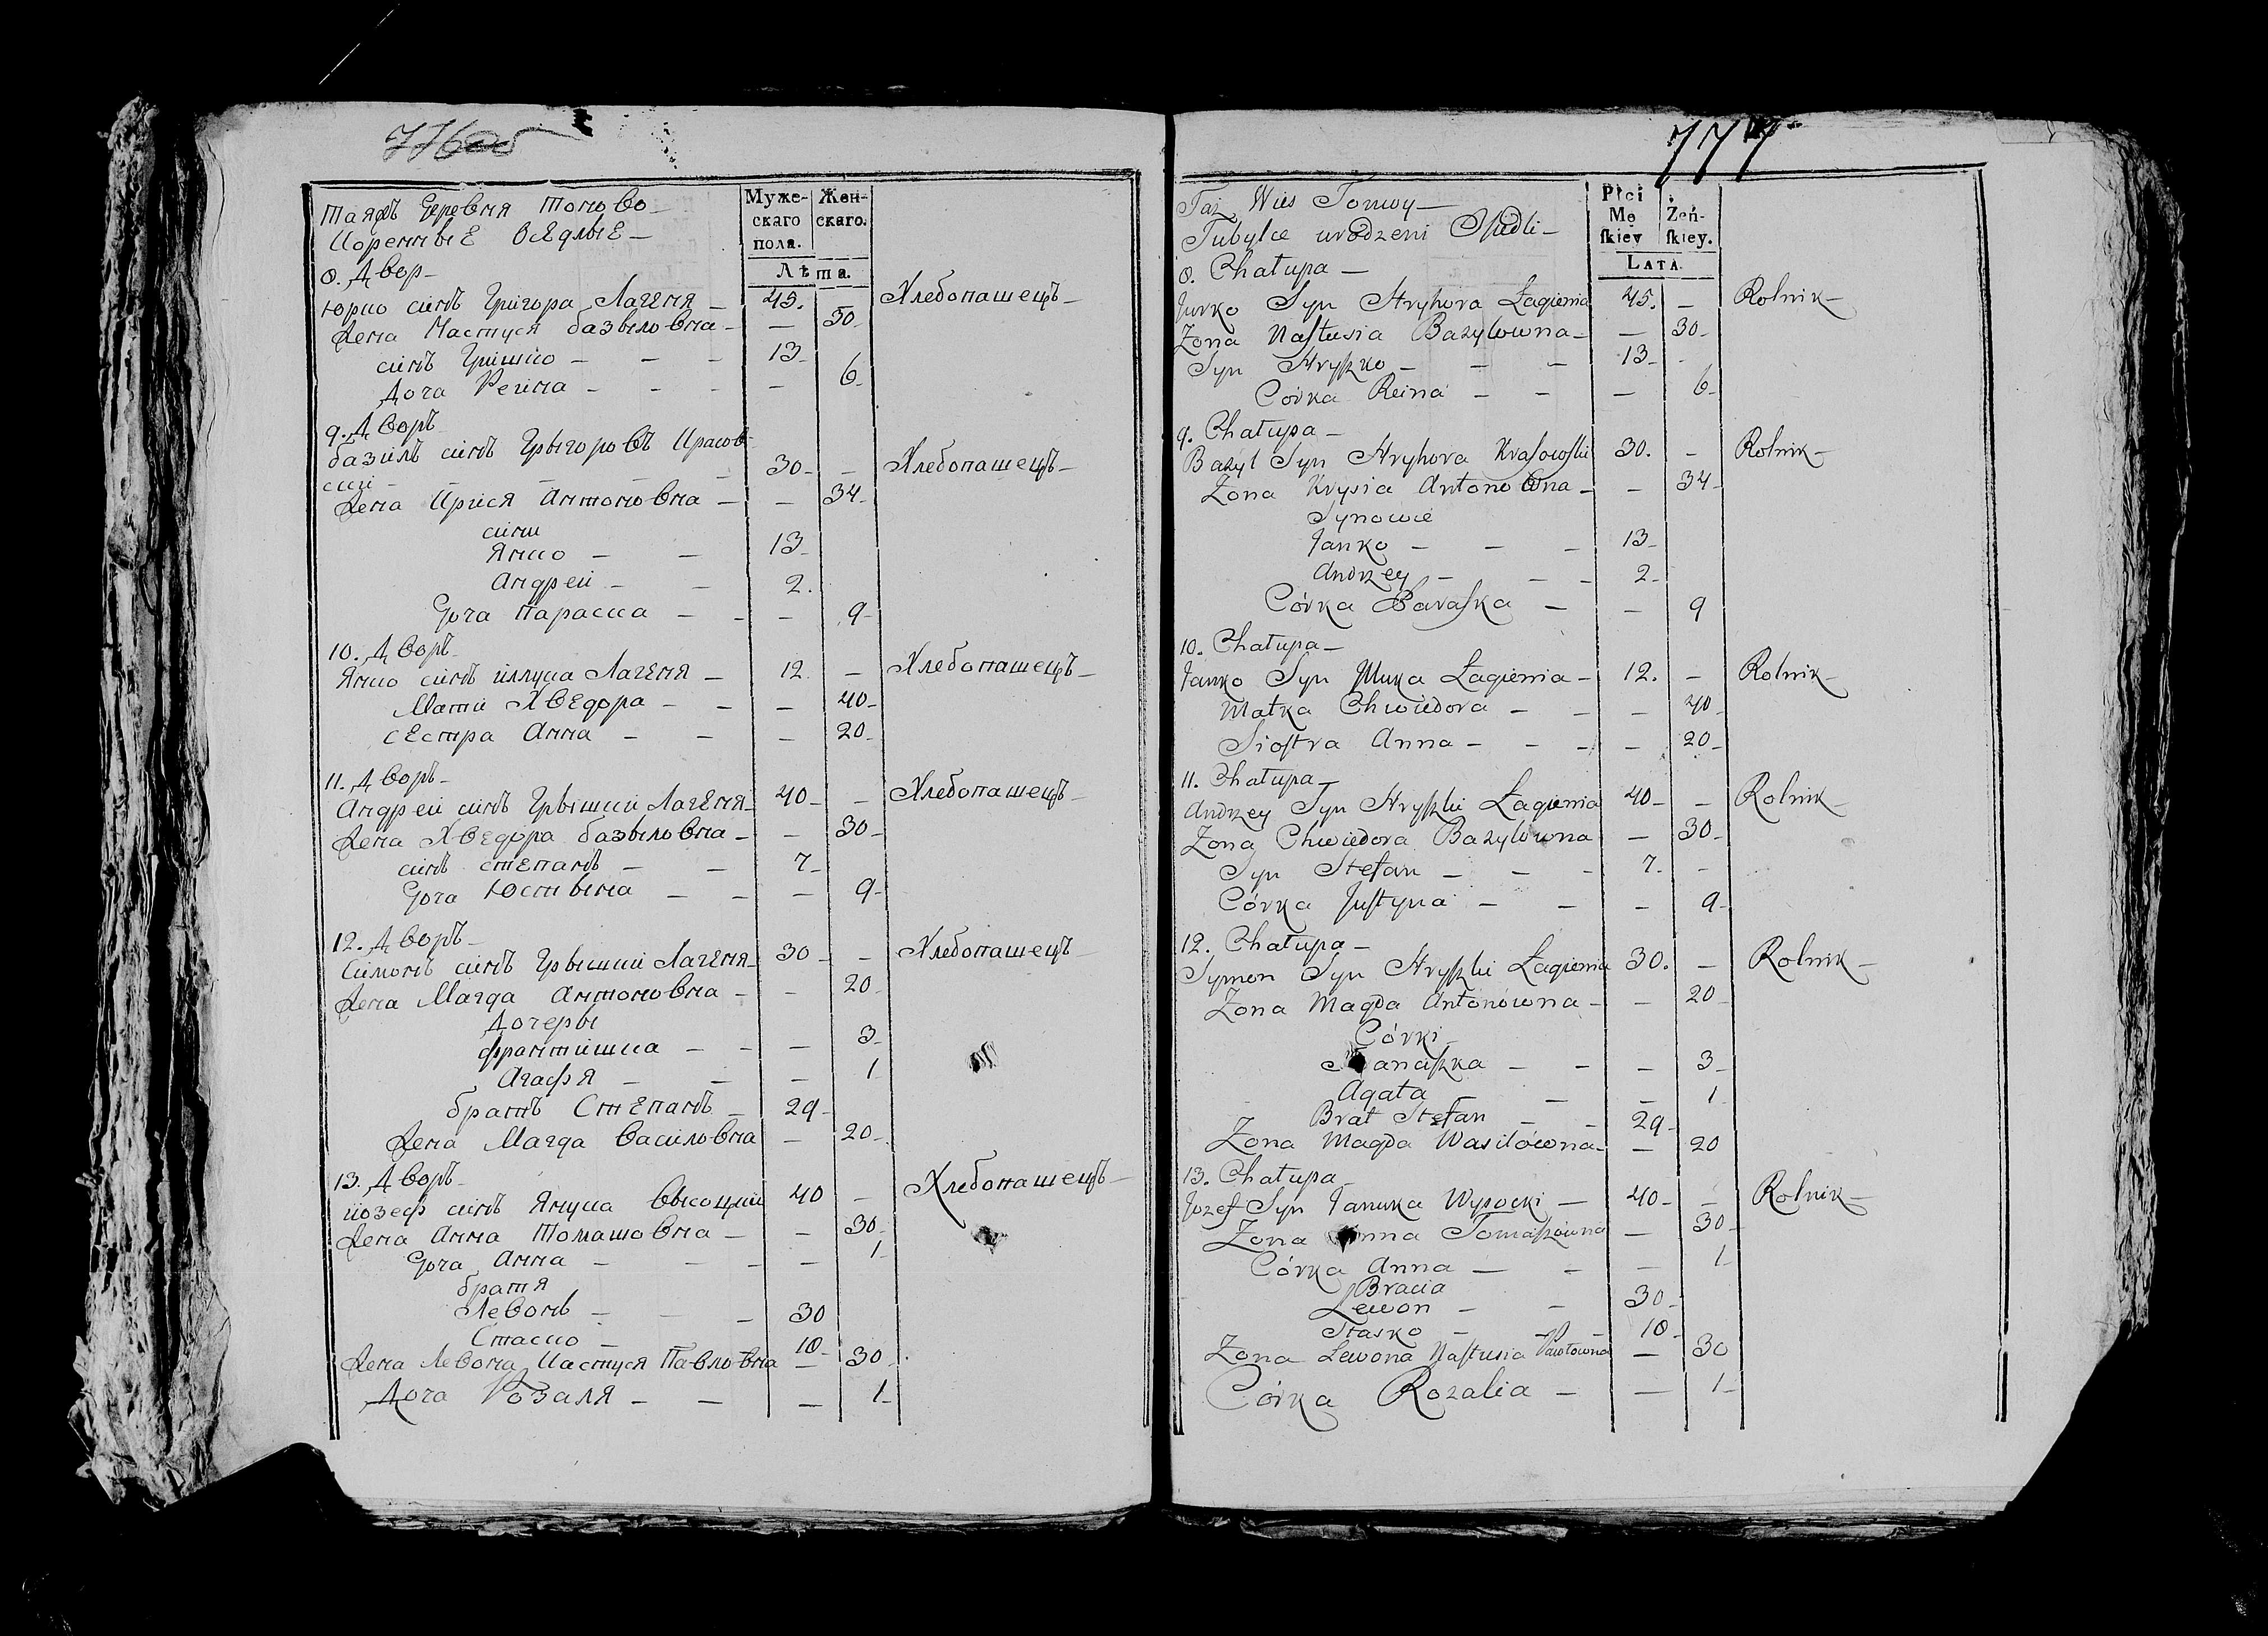 776
таяжъ деревня тоново
Коренные осядлые
Муже-
скаго
пола.
Жен-
скаго.
Лѣта.
8. Двор
Юрко синъ Григора Лагеня — 45. — Хлебопашецъ
Жена Настуся базыловна — — 30
синъ Гришко — — — 13
Доча Регина — — — — 6
9. Дворъ
базилъ синъ Грыгоровъ Красов-
ский — — — 30 — Хлебопашецъ
Жена Крися Антоновна — — 34
сины
Янко — — 13
Андрей — — 2.
Доча Параска — — — 9
10. Дворъ
Янко синъ иллука Лагеня — 12 — Хлебопашецъ
Мати Хведора — — — 40
сестра Анна — — — 20
11. Дворъ
Андрей синъ Грышки Лагеня 40 — Хлебопашецъ
Жена Хведора базыловна — — 30
синъ степанъ — — 7
Доча Юстына — — — 9
12. Дворъ
Симонъ синъ Грышки Лагеня 30 — Хлебопашецъ
Жена Магда Антоновна — — 20
Дочеры
франтишка — — — 3
Агафя — — — 1
братъ Степанъ — 29
Жена Магда Василовна — 20
13. Дворъ
иозеф синъ Янука Высоцкий 40 — Хлебопашецъ
Жена Анна Томашовна — — 30
Доча Анна — — — — 1
братя
Левонъ — — — 30
Стаско — 10
Жена Левона Настуся Павловна — 30
Доча Розаля — — — 1
777
Taż Wieś Tonwy
Tubylce urodzeni Siedli
Płci
Mę
ſkiey
Żeń-
ſkiey.
LATA.
8. Chałupa —
Jurko Syn Hryhora Łagienia 45. — Rolnik
Zona Naſtusia Bazylowna — — 30
Syn Hryſzko — — — 13 -
Córka Reina — — — 6
9. Chałupa —
Bazyl Syn Hryhora Kraſowſki 30. — Rolnik
Zona Krysia Antonowna — — 34
Synowie
Janko — — — 13
Andrzey — — — 2
Córka Paraſka — — 9
10. Chałupa —
Janko Syn Illuka Łagienia — 12. — Rolnik
Matka Chwiedora — — — 40
Sioſtra Anna — — — — 20
11. Chałupa —
Andrzey Syn Hryſzki Łagienia 40 — Rolnik
Zona Chwiedora Bazylowna — 30
Syn Stefan — — — 7. -
Córka Juſtyna — — — 9
12. Chałupa —
Symon Syn Hryſzki Łagienia 30. — Rolnik
Zona Magda Antonówna — — 20
Córki
— — — 3
Agata — — — 1
Brat Stefan — — 29
Zona Magda Wasilówna — — 20
13. Chałupa
Jozef Syn Januka Wysocki — 40 — Rolnik
Zona Anna Tomaſzówna — 30
Córka Anna — — — 1
Bracia
Lewon — — 30
Stasko — — — 10
Zona Lewona Naſtusia Pawłowna — 30
Córka Rozalia — — 1